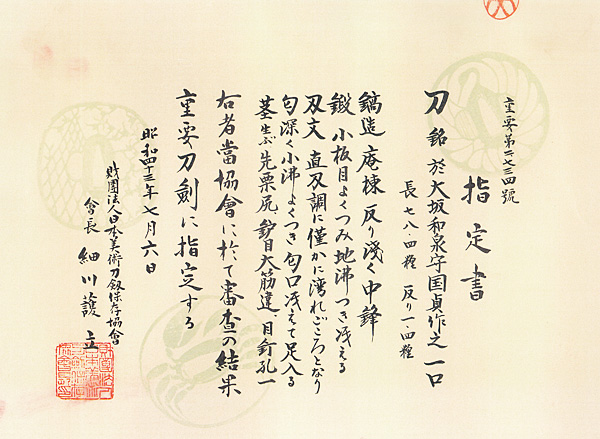 重要第 七三四號
指定書
刀 銘 於大坂和泉守国貞作之 一口
長七八・四糎 反り一・四糎
鎬造 庵棟 反り浅く 中鋒
鍛 小板目よくつみ 地沸つき冴える
刃文 直刃調に僅かに湾れごころとなり
匂深く 小沸よくつき 匂口冴えて足入る
茎 生ぶ、先栗尻、鑢目大筋違、目釘孔一
右者當協會に於て審査の結果
重要刀劍に指定する
昭和四十三年七月六日
財團法人日本美術刀劍保存協會
會長 細川護立